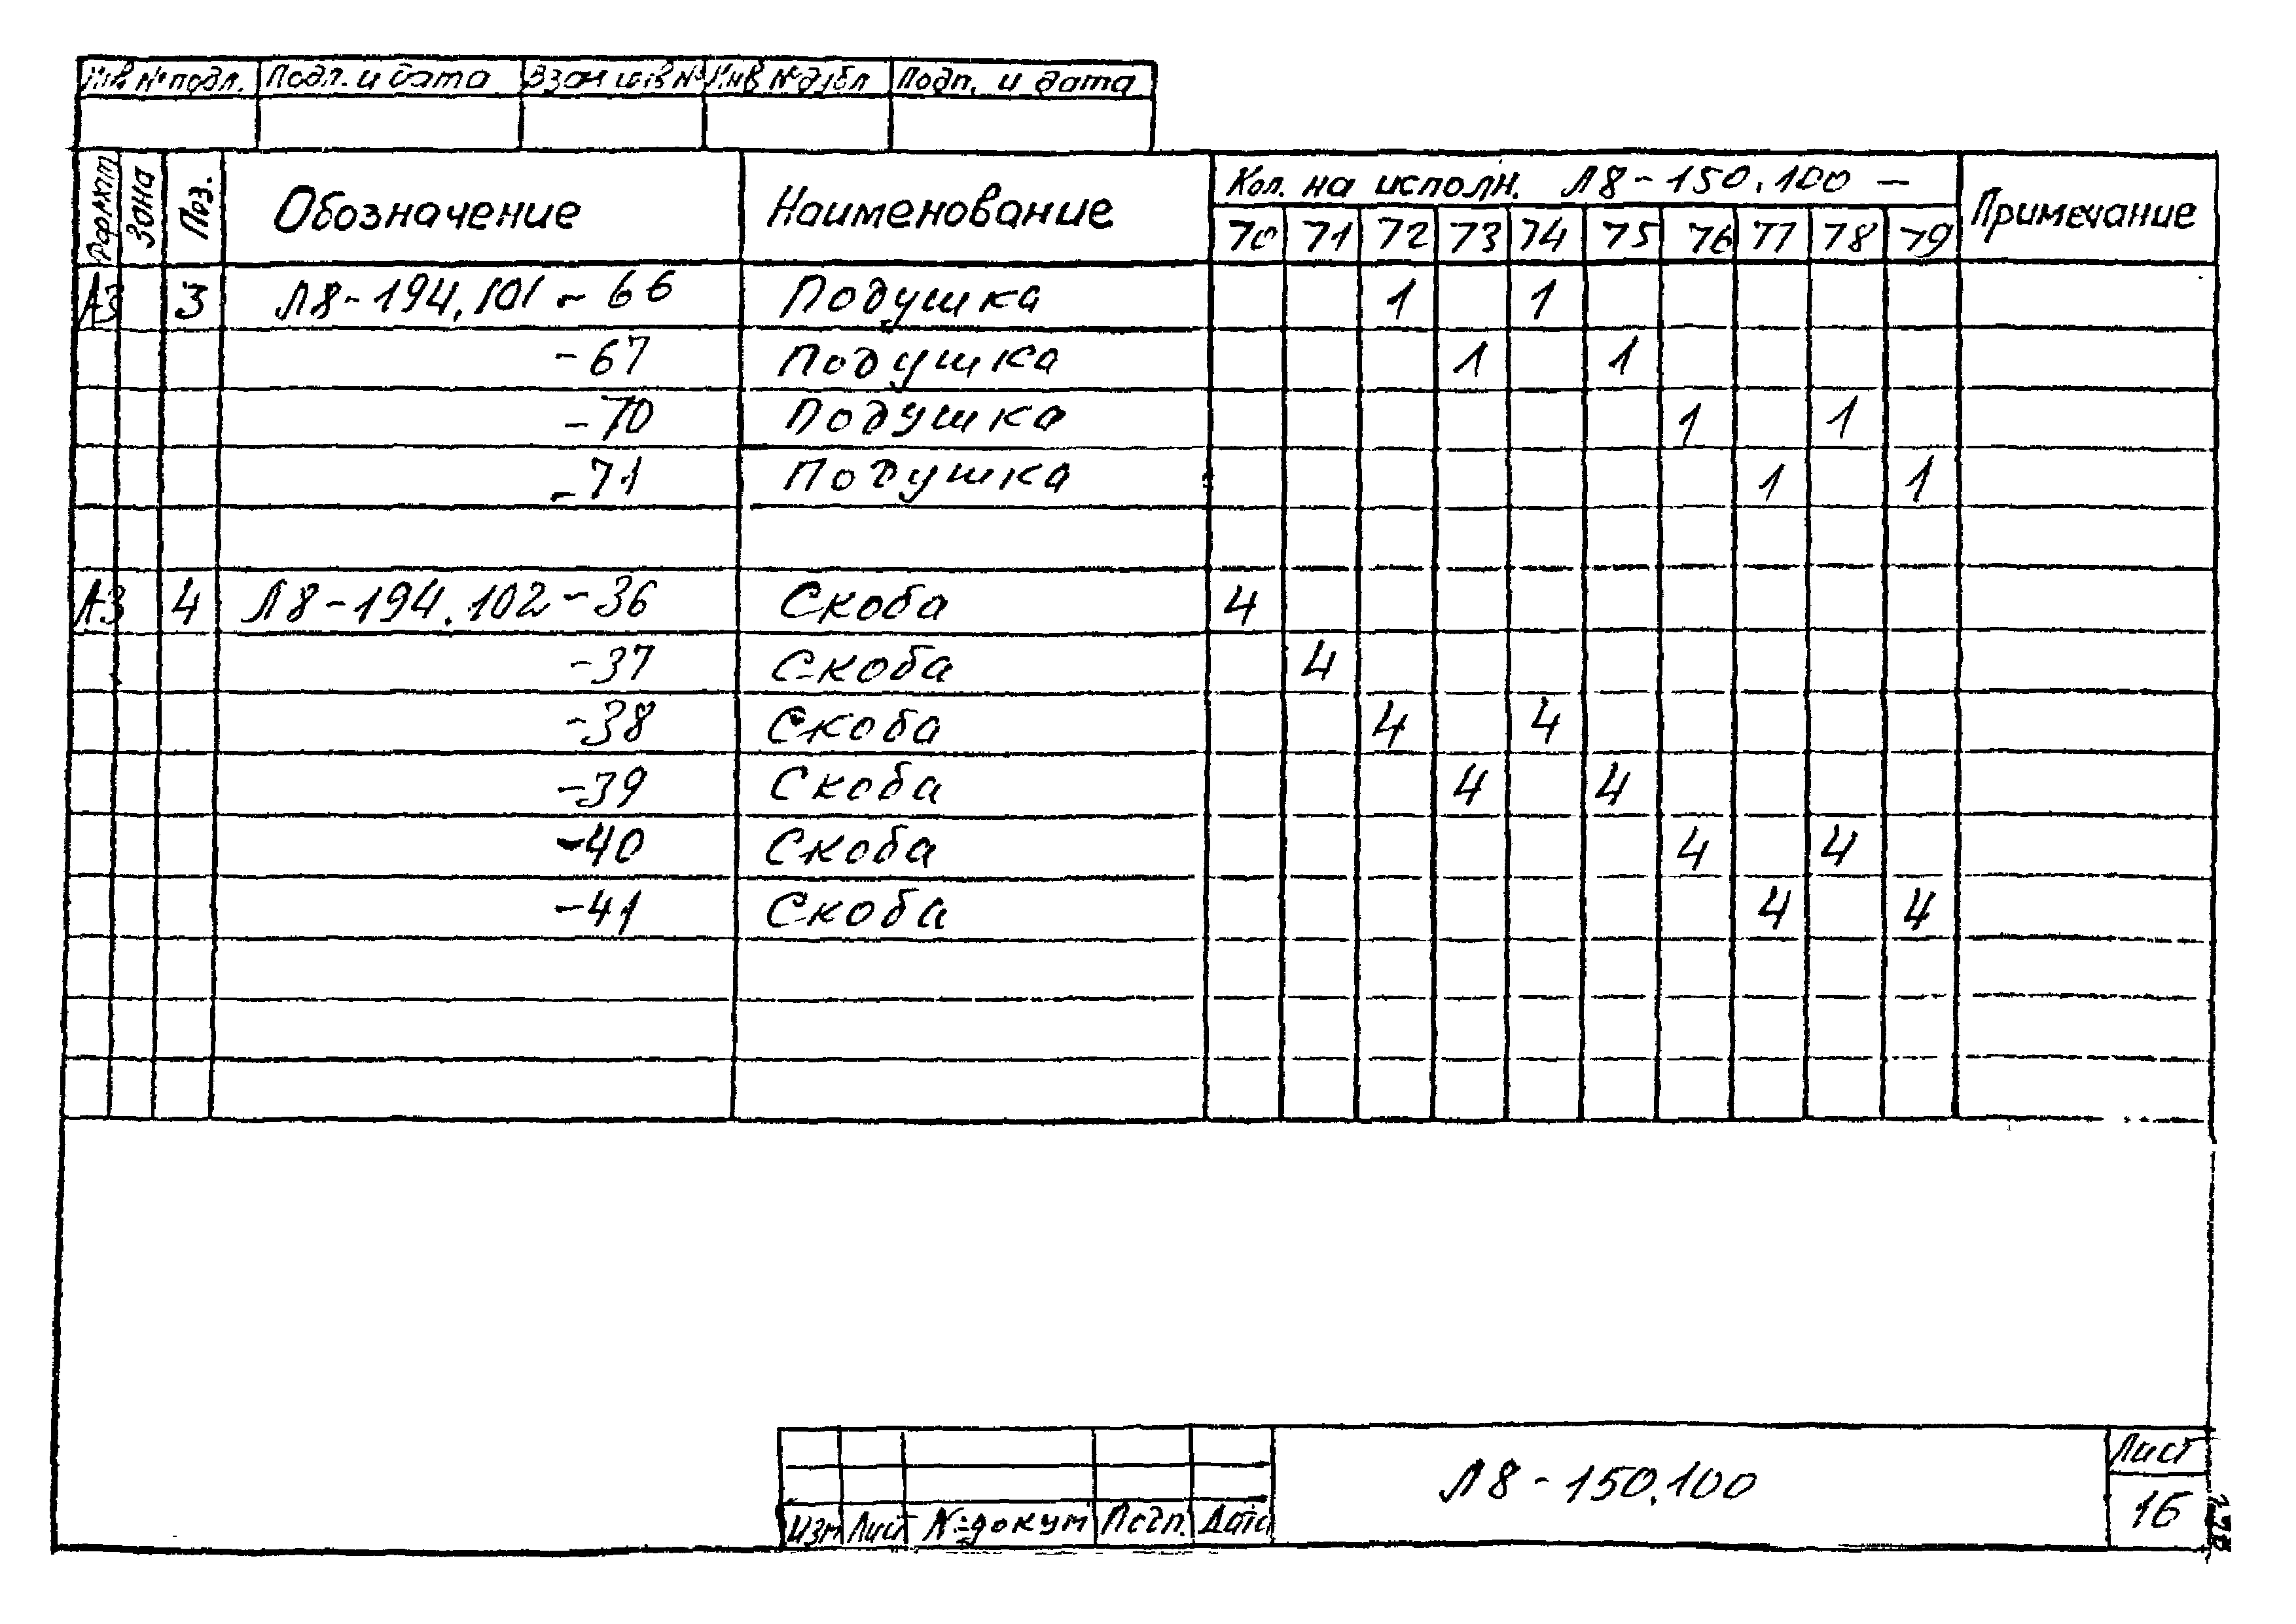 Инв № подл. Подп. и дата Взам инв № Инв № дубл Подп. и дата
Формат Зона Поз. Обозначение Наименование Кол. на исполн. Л8-150.100 — Примечание
70 71 72 73 74 75 76 77 78 79
А3 3 Л8-194.101-66 Подушка 1 1
-67 Подушка 1 1
-70 Подушка 1 1
-71 Подушка 1 1
А3 4 Л8-194.102-36 Скоба 4
-37 Скоба 4
-38 Скоба 4 4
-39 Скоба 4 4
-40 Скоба 4 4
-41 Скоба 4 4
Л8-150.100 Лист
16
Изм Лист № докум Подп. Дата